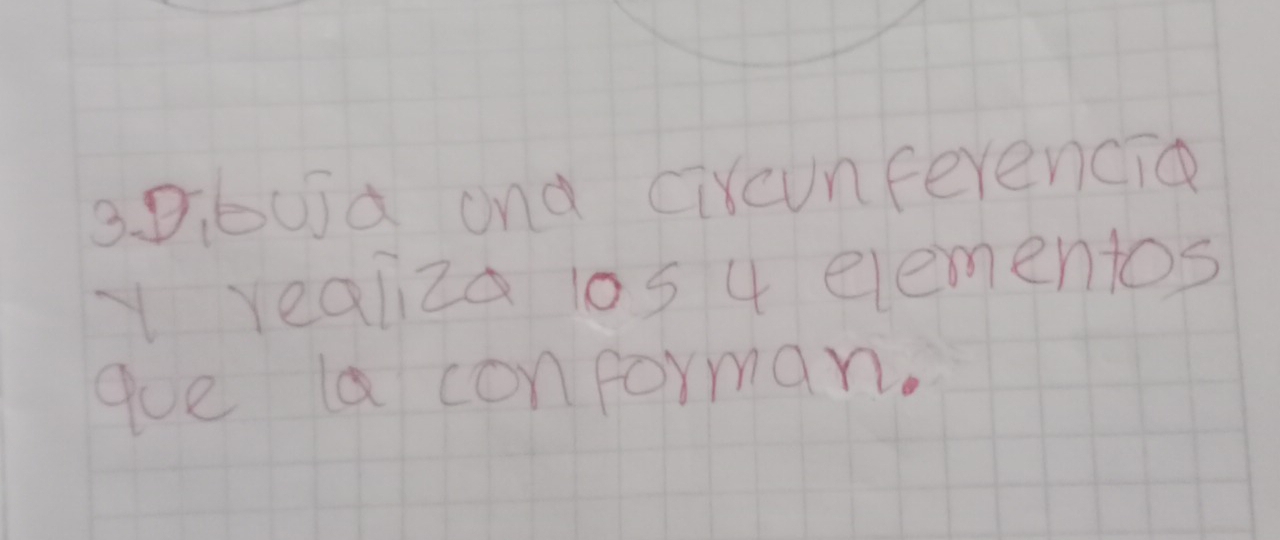 3.Dibuja una circunferencia
y realiza los 4 elementos
que la conforman.